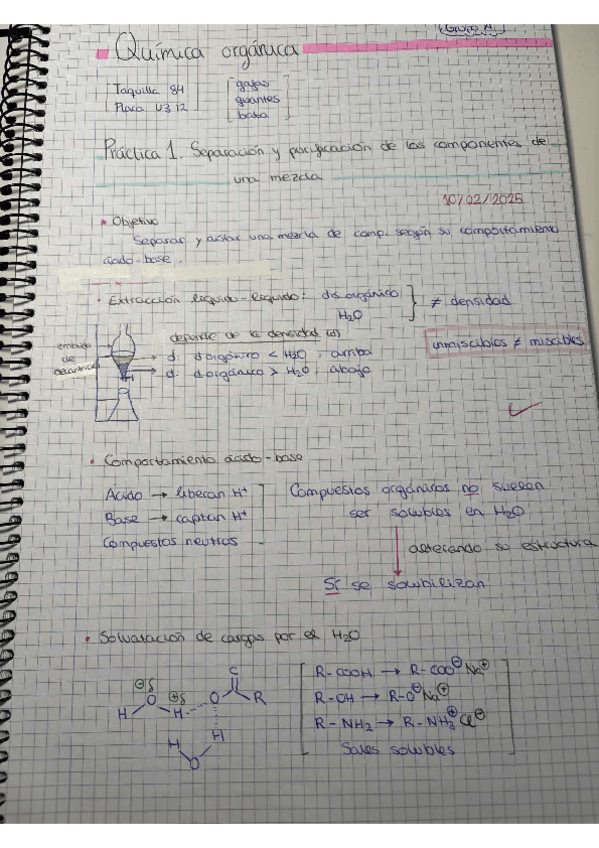 Grupo A.
Química orgánica
Taquilla 84
Placa U3 12
gafas
guantes
bata
Práctica 1. Separación y purificación de los componentes de
una mezcla
10/02/2025
• Objetivo
Separar y aislar una mezcla de comp. según su comportamiento
ácido-base.
• Extracción líquido-líquido: dis. orgánico
H₂O
≠ densidad
depende de la densidad (d)
embudo
de
decantación
d: d orgánico < H₂O, arriba
d: d orgánico > H₂O, abajo
inmiscibles ≠ miscibles
• Comportamiento ácido-base
Ácido → liberan H⁺
Base → captan H⁺
Compuestos neutros
Compuestos orgánicos no suelen
ser solubles en H₂O
alterando su estructura
Sí se solubilizan
• Solvatación de cargas por el H₂O
⊖δ
⊕δ
C
H O H O R
H H
O
R-COOH → R-COO⊖Na⊕
R-OH → R-O⊖Na⊕
R-NH₂ → R-NH₃⊕Cl⊖
Sales solubles